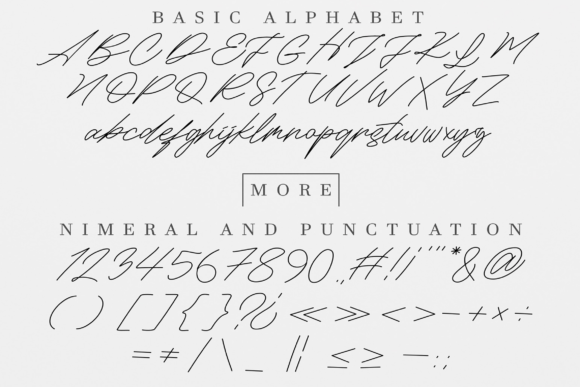 BASIC ALPHABET
A B C D E F G H I J K L M
N O P Q R S T U V W X Y Z
abcdefghijklmnopqrstuvwxyz
MORE
NIMERAL AND PUNCTUATION
1234567890.,#!¡'""*&@
() [] {} ?¿ «» <> - + × ÷
= ≠ / \ _ | ¦ ≤ ≥ — : ;